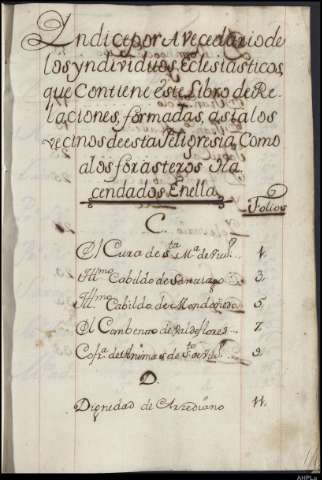 Yndice por Avecedario de
los yndividuos, Eclesiasticos,
que Contiene este Libro de Re-
laciones, formadas, asta los
vecinos de esta feligresia, Como
a los forasteros Ha
cendados En ella
Folios
C.
El Cura de Sta. Ma. de 1.
Illmo. Cabildo de Santiago 3.
Illmo. Cabildo de Mondoñedo 5.
El Combento de Valdeflores 7.
Cofa. de Animas de 9.
D.
Dignidad de Arzediano 11.
AHPLu